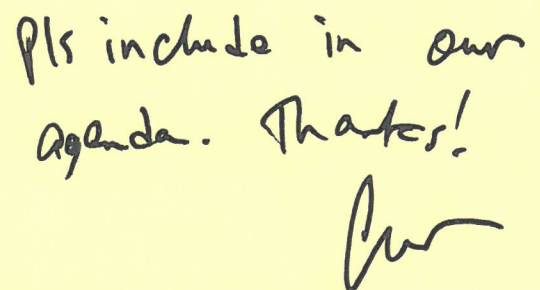 Pls include in our
agenda. Thanks!